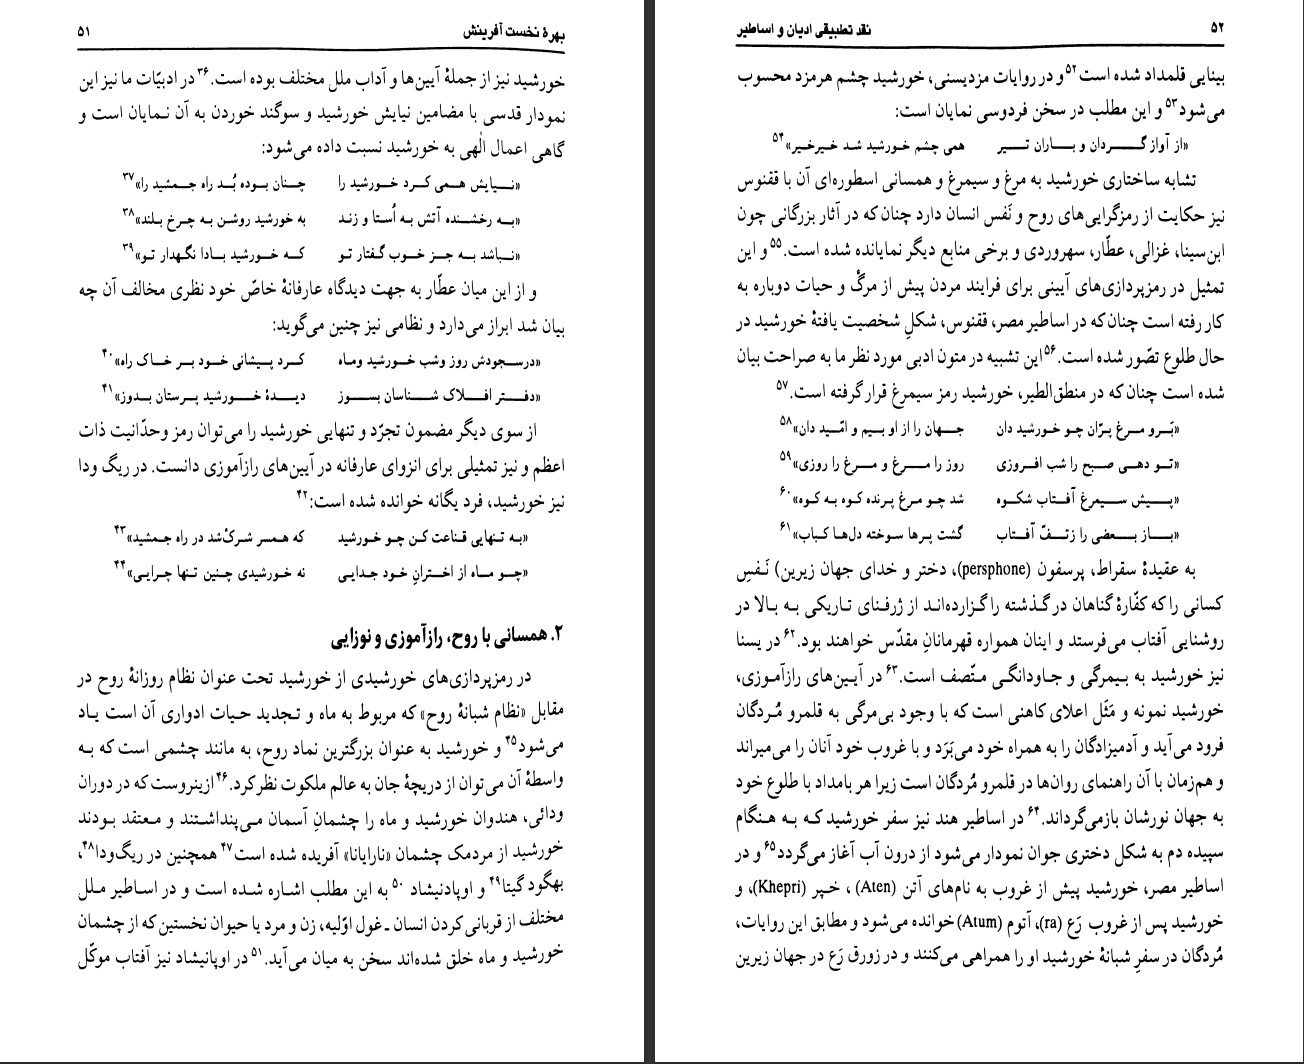 بهرهٔ نخست آفرینش ۵۱
خورشید نیز از جملهٔ آیین‌ها و آداب ملل مختلف بوده است.۳۶ در ادبیّات ما نیز این
نمودار قدسی با مضامین نیایش خورشید و سوگند خوردن به آن نمایان است و
گاهی اعمال الٰهی به خورشید نسبت داده می‌شود:
«نیایش همی کرد خورشید را چنان بوده بُد راه جمشید را»۳۷
«به رخشنده آتش به اُستا و زند به خورشید روشن به چرخ بلند»۳۸
«نباشد به جز خوب گفتار تو که خورشید بادا نگهدار تو»۳۹
و از این میان عطّار به جهت دیدگاه عارفانهٔ خاصّ خود نظری مخالف آن چه
بیان شد ابراز می‌دارد و نظامی نیز چنین می‌گوید:
«درسجودش روز وشب خورشید وماه کرد پیشانی خود بر خاک راه»۴۰
«دفتر افلاک شناسان بسوز دیدهٔ خورشید پرستان بدوز»۴۱
از سوی دیگر مضمون تجرّد و تنهایی خورشید را می‌توان رمز وحدّانیت ذات
اعظم و نیز تمثیلی برای انزوای عارفانه در آیین‌های رازآموزی دانست. در ریگ ودا
نیز خورشید، فرد یگانه خوانده شده است:۴۲
«به تنهایی قناعت کن چو خورشید که همسر شرکْ‌شد در راه جمشید»۴۳
«چو ماه از اخترانِ خود جدایی نه خورشیدی چنین تنها چرایی»۴۴
۲. همسانی با روح، رازآموزی و نوزایی
در رمزپردازی‌های خورشیدی از خورشید تحت عنوان نظام روزانهٔ روح در
مقابل «نظام شبانهٔ روح» که مربوط به ماه و تجدید حیات ادواری آن است یاد
می‌شود۴۵ و خورشید به عنوان بزرگترین نماد روح، به مانند چشمی است که به
واسطهٔ آن می‌توان از دریچهٔ جان به عالم ملکوت نظر کرد.۴۶ ازینروست که در دوران
ودائی، هندوان خورشید و ماه را چشمانِ آسمان می‌پنداشتند و معتقد بودند
خورشید از مردمک چشمان «نارایانا» آفریده شده است۴۷ همچنین در ریگ‌ودا۴۸،
بهگود گیتا۴۹ و اوپادنیشاد ۵۰ به این مطلب اشاره شده است و در اساطیر ملل
مختلف از قربانی کردن انسان ـ غول اوّلیه، زن و مرد یا حیوان نخستین که از چشمان
خورشید و ماه خلق شده‌اند سخن به میان می‌آید.۵۱ در اوپانیشاد نیز آفتاب موکّل
۵۲ نقد تطبیقی ادیان و اساطیر
بینایی قلمداد شده است۵۲ و در روایات مزدیسنی، خورشید چشم هرمزد محسوب
می‌شود۵۳ و این مطلب در سخن فردوسی نمایان است:
«از آواز گردان و باران تیر همی چشم خورشید شد خیرخیر»۵۴
تشابه ساختاری خورشید به مرغ و سیمرغ و همسانی اسطوره‌ای آن با ققنوس
نیز حکایت از رمزگرایی‌های روح و نَفس انسان دارد چنان که در آثار بزرگانی چون
ابن‌سینا، غزالی، عطّار، سهروردی و برخی منابع دیگر نمایانده شده است.۵۵ و این
تمثیل در رمزپردازی‌های آیینی برای فرایند مردن پیش از مرگْ و حیات دوباره به
کار رفته است چنان که در اساطیر مصر، ققنوس، شکلِ شخصیت یافتهٔ خورشید در
حال طلوع تصّور شده است.۵۶ این تشبیه در متون ادبی مورد نظر ما به صراحت بیان
شده است چنان که در منطق‌الطیر، خورشید رمز سیمرغ قرار گرفته است.۵۷
«بَرو مرغ پرّان چو خورشید دان جهان را از او بیم و امّید دان»۵۸
«تو دهی صبح را شب افروزی روز را مرغ و مرغ را روزی»۵۹
«پیش سیمرغ آفتاب شکوه شد چو مرغ پرنده کوه به کوه»۶۰
«باز بعضی را زتفّ آفتاب گشت پرها سوخته دل‌ها کباب»۶۱
به عقیدهٔ سقراط، پرسفون (persphone)، دختر و خدای جهان زیرین) نَفسِ
کسانی را که کفّارهٔ گناهان در گذشته را گزارده‌اند از ژرفنای تاریکی به بالا در
روشنایی آفتاب می‌فرستد و اینان همواره قهرمانانِ مقدّس خواهند بود.۶۲ در یسنا
نیز خورشید به بیمرگی و جاودانگی متّصف است.۶۳ در آیین‌های رازآموزی،
خورشید نمونه و مَثَل اعلای کاهنی است که با وجود بی‌مرگی به قلمرو مُردگان
فرود می‌آید و آدمیزادگان را به همراه خود می‌بَرَد و با غروب خود آنان را می‌میراند
و هم‌زمان با آن راهنمای روان‌ها در قلمرو مُردگان است زیرا هر بامداد با طلوع خود
به جهان نورشان بازمی‌گرداند.۶۴ در اساطیر هند نیز سفر خورشید که به هنگام
سپیده دم به شکل دختری جوان نمودار می‌شود از درون آب آغاز می‌گردد۶۵ و در
اساطیر مصر، خورشید پیش از غروب به نام‌های آتن (Aten) ، خپر (Khepri)، و
خورشید پس از غروب رَع (ra)، آتوم (Atum) خوانده می‌شود و مطابق این روایات،
مُردگان در سفرِ شبانهٔ خورشید او را همراهی می‌کنند و در زورق رَع در جهان زیرین